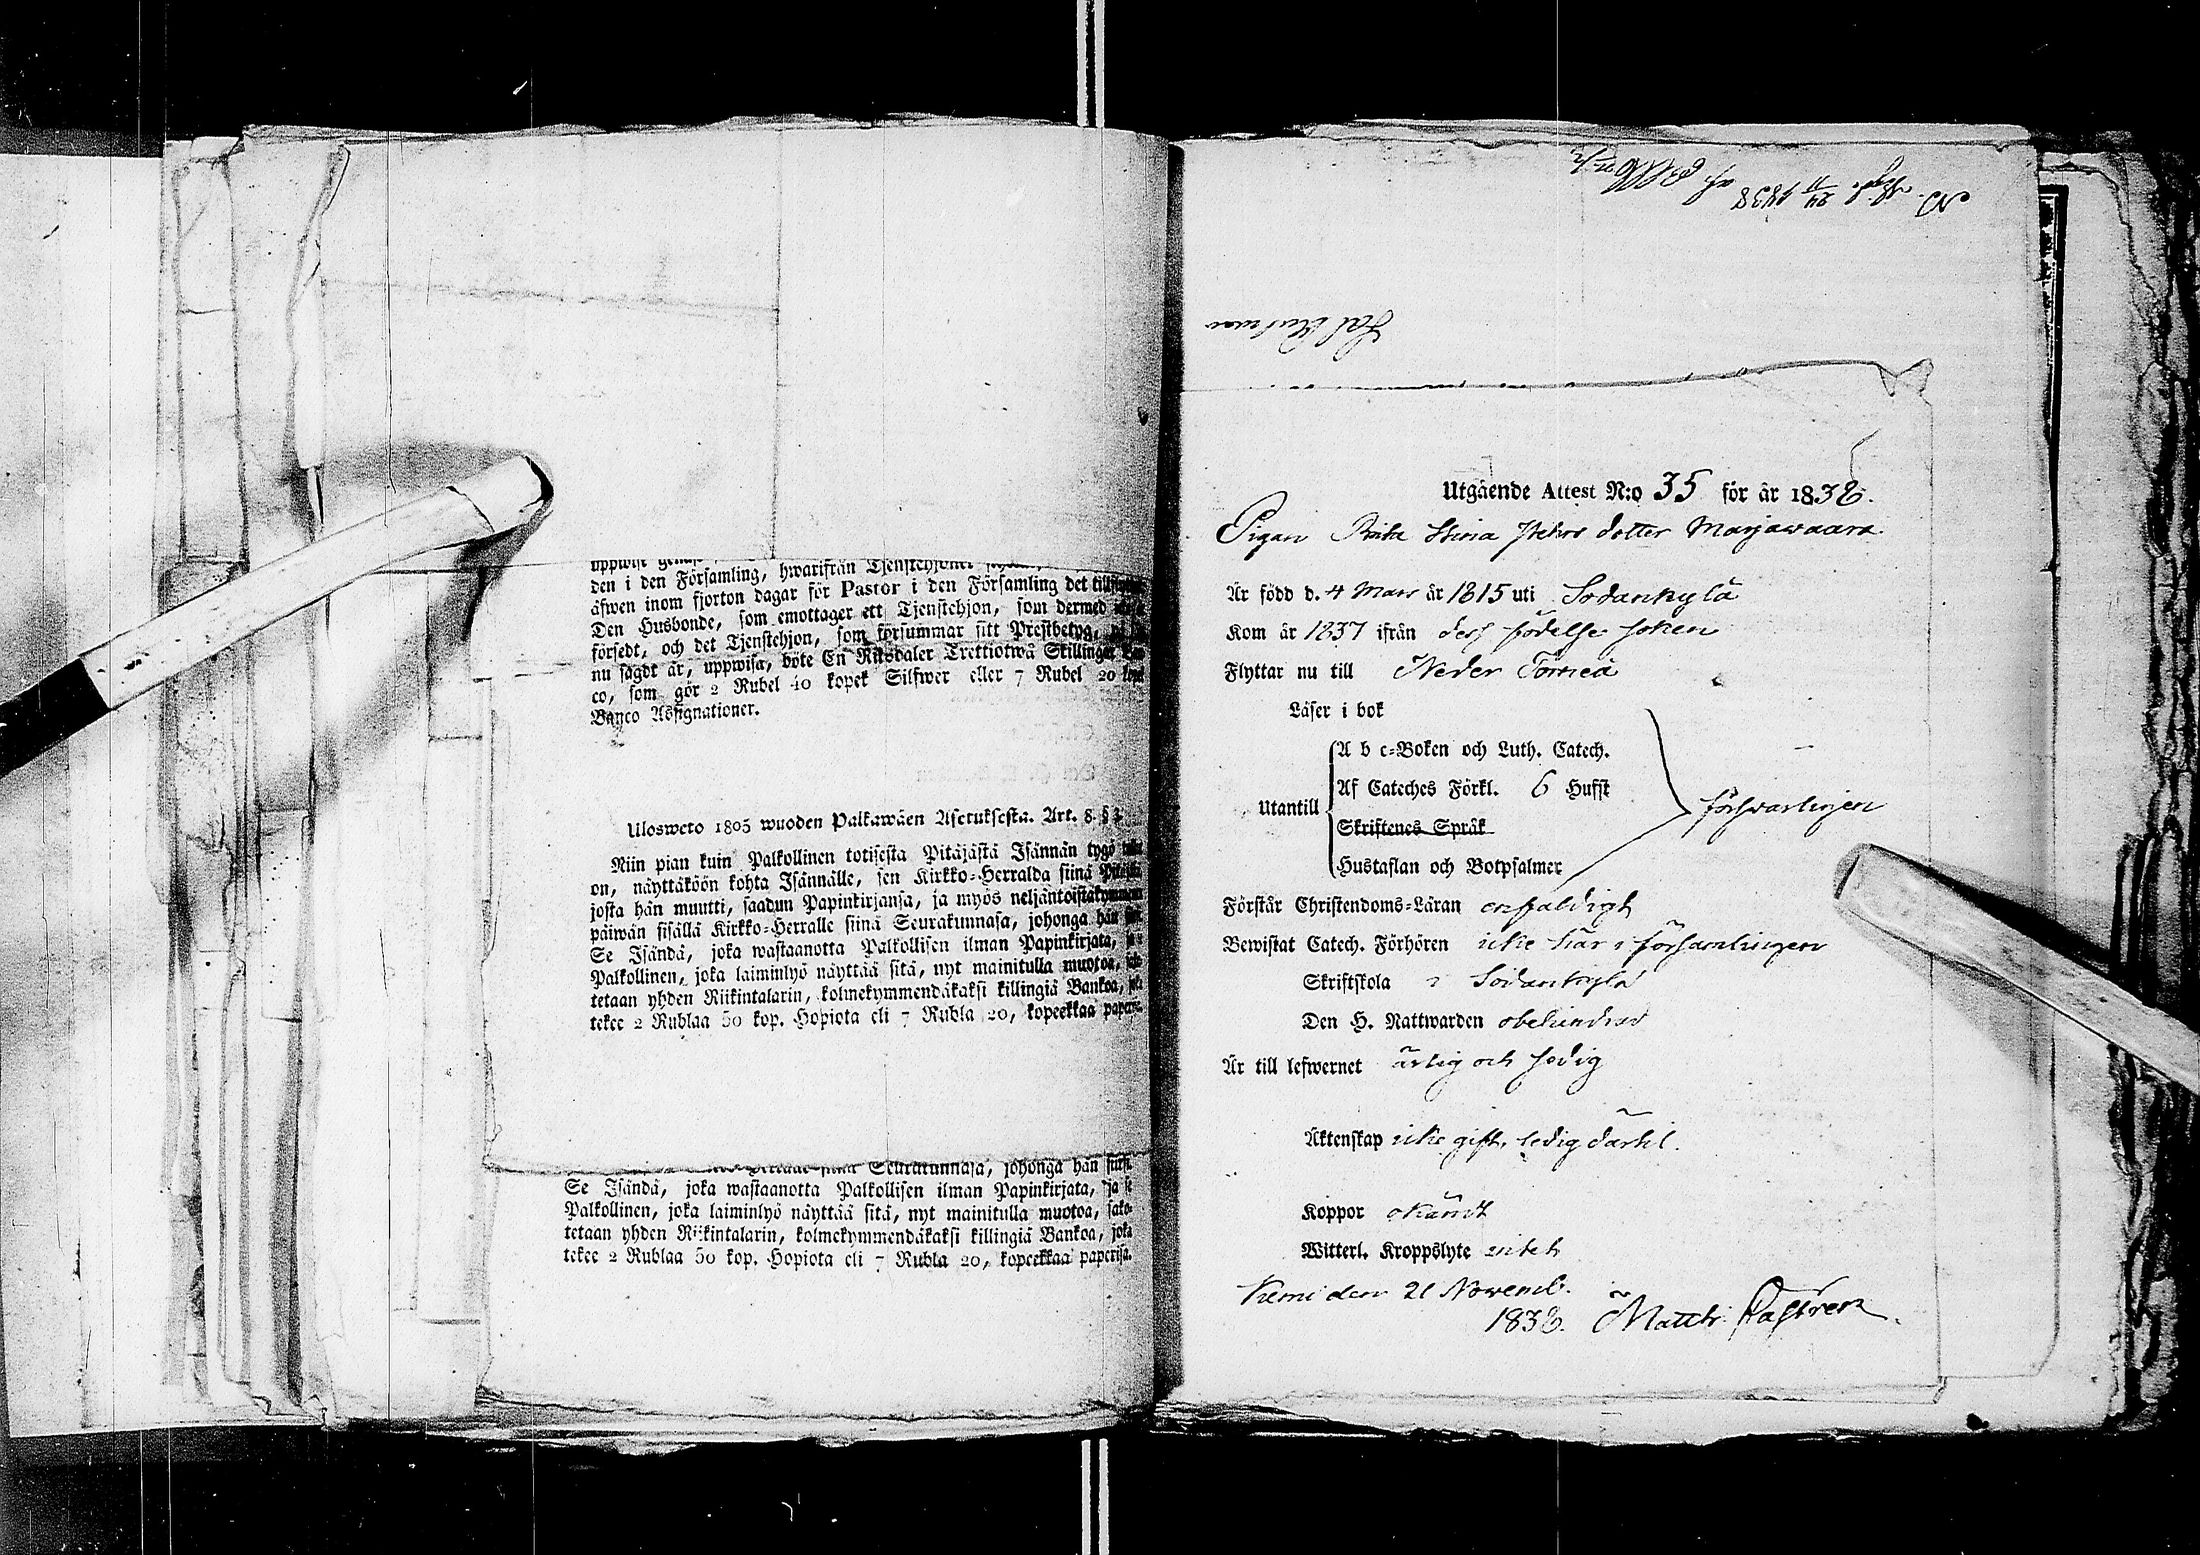 den i den Församling, hwarifrån Tjenstehjonet
äfwen inom fjorton dagar för Pastor i den Församling det
Den Husbonde, som emottager ett Tjenstehjon, som dermed
försedt, och det Tjenstehjon, som försummar sitt Prestbetyg,
nu sagdt är, uppwisa, böte En Riksdaler Trettiotwå Skillingar
co, som gör 2 Rubel 40 kopek Silfwer eller 7 Rubel 20
Banco Assignationer.
Ulosweto 1805 wuoden Palkawäen Asetuksesta. Art. 8 §
Niin pian kuin Palkollinen totisesta Pitäjästä Isännän tygö
on, näyttäköön kohta Isännälle, sen Kirkko-Herralda siinä
josta hän muutti, saadun Papinkirjansa, ja myös neljäntoistakymmen
päiwän sisällä Kirkko-Herralle siinä Seurakunnasa, johonga hän
Se Isändä, joka wastaanotta Palkollisen ilman Papinkirjata,
Palkollinen, joka laiminlyö näyttää sitä, nyt mainitulla muotoa,
tetaan yhden Riikintalarin, kolmekymmendäkaksi killingiä Bankoa,
tekee 2 Rublaa 50 kop. Hopiota eli 7 Rubla 20, kopeekkaa
Seurakunnasa, johonga hän
Se Isändä, joka wastaanotta Palkollisen ilman Papinkirjata, ja se
Palkollinen, joka laiminlyö näyttää sitä, nyt mainitulla muotoa, sako-
tetaan yhden Riikintalarin, kolmekymmendäkaksi killingiä Bankoa, joka
tekee 2 Rublaa 50 kop. Hopiota eli 7 Rubla 20, kopeekkaa paperisa.
24/11 1838
Utgående Attest N:o 35 för år 1838.
Pigan Brita Stina Pehrs dotter Marjawaara
Är född d. 4 Mars år 1815 uti Sodankylä
Kom år 1837 ifrån dess födelse soken
Flyttar nu till Neder Torneå
Läser i bok
A b c-Boken och Luth. Catech.
Af Cateches Förkl. 6 Hufst
Utantill
försvarligen
Skriftenes Språk
Hustaflan och Botpsalmer
Förstår Christendoms-Läran enfaldigt
Bewistat Catech. Förhören icke här i församlingen
Skriftskola i Sodankylä
Den H. Nattwarden obehindrad
Är till lefwernet ärlig och sedig
Äktenskap icke gift, ledig därtil.
Koppor okändt
Witterl. Kroppslyte intet
Kemi den 21 Novemb.
1838. Matth. Castrén